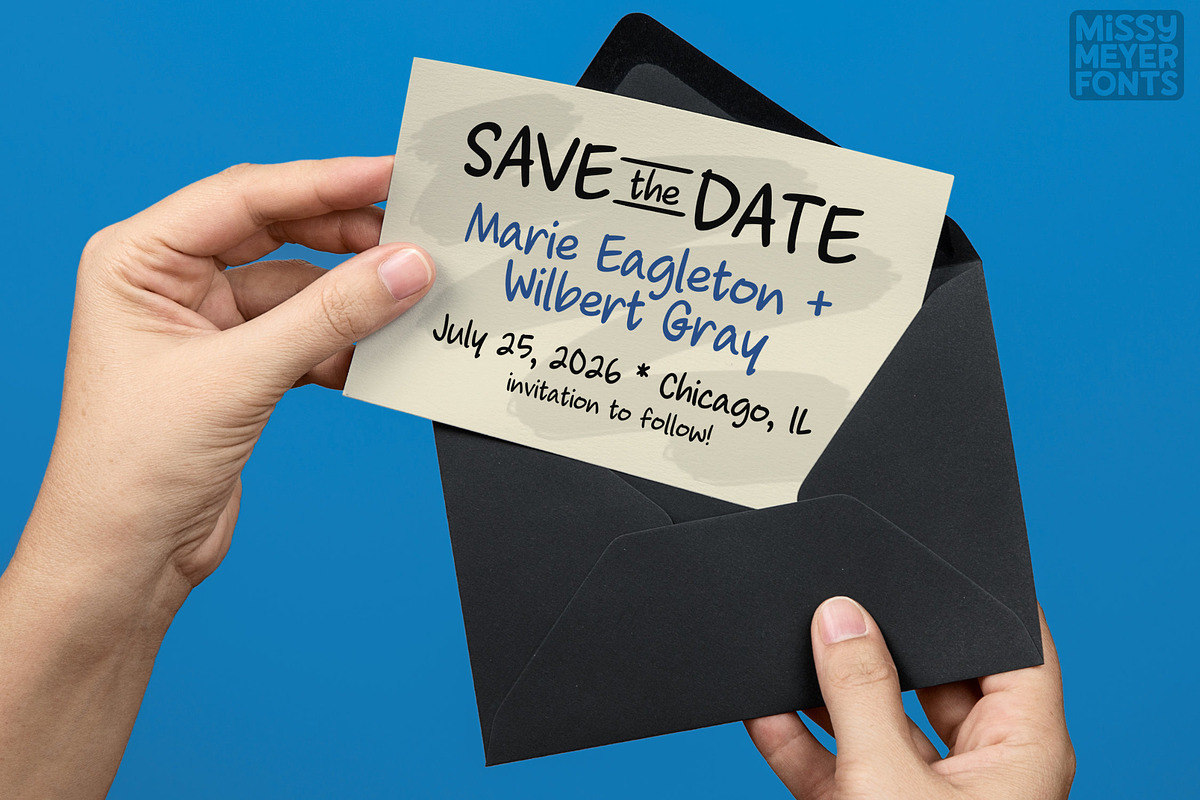 SAVE the DATE
Marie Eagleton +
Wilbert Gray
July 25, 2026 * Chicago, IL
invitation to follow!
MiSSY
MEYER
FONTS